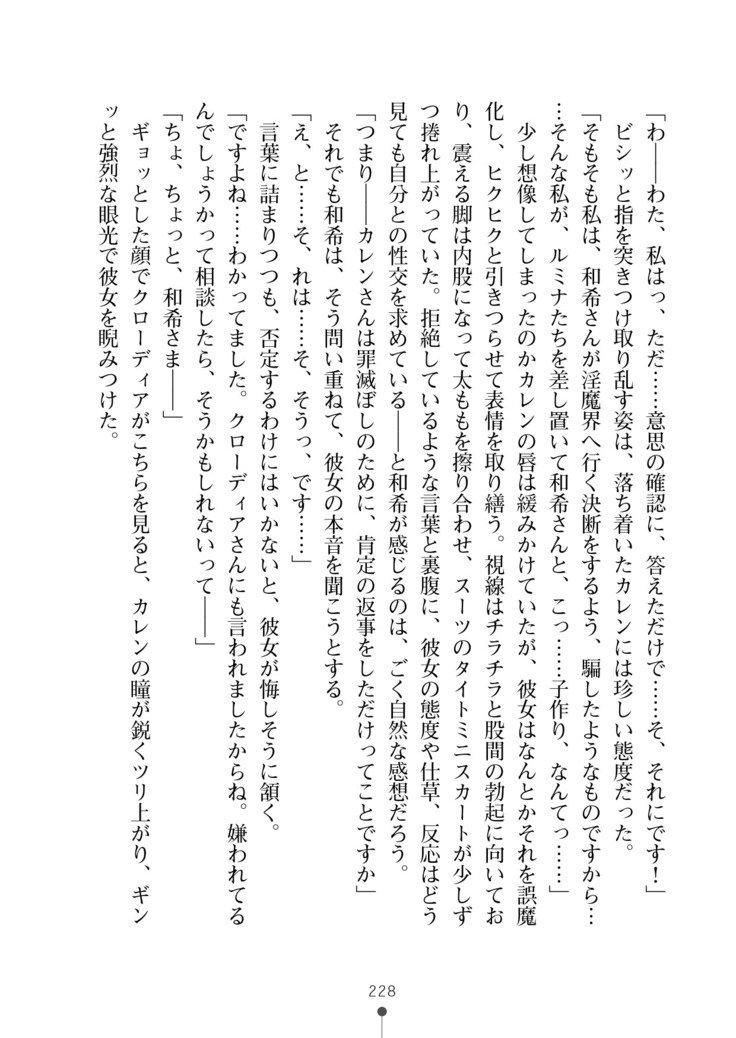 「わ――わた、私はっ、ただ……意思の確認に、答えただけで……そ、それにです！」
　ビシッと指を突きつけ取り乱す姿は、落ち着いたカレンには珍しい態度だった。
「そもそも私は、和希さんが淫魔界へ行く決断をするよう、騙したようなものですから…
…そんな私が、ルミナたちを差し置いて和希さんと、こっ……子作り、なんてっ……」
　少し想像してしまったのかカレンの唇は緩みかけていたが、彼女はなんとかそれを誤魔
化し、ヒクヒクと引きつらせて表情を取り繕う。視線はチラチラと股間の勃起に向いてお
り、震える脚は内股になって太ももを擦り合わせ、スーツのタイトミニスカートが少しず
つ捲れ上がっていた。拒絶しているような言葉と裏腹に、彼女の態度や仕草、反応はどう
見ても自分との性交を求めている――と和希が感じるのは、ごく自然な感想だろう。
「つまり――カレンさんは罪滅ぼしのために、肯定の返事をしただけってことですか」
　それでも和希は、そう問い重ねて、彼女の本音を聞こうとする。
「え、と……そ、れは……そ、そうっ、です……」
　言葉に詰まりつつも、否定するわけにはいかないと、彼女が悔しそうに頷く。
「ですよね……わかってました。クローディアさんにも言われましたからね。嫌われてる
んでしょうかって相談したら、そうかもしれないって――」
「ちょ、ちょっと、和希さま――」
　ギョッとした顔でクローディアがこちらを見ると、カレンの瞳が鋭くツリ上がり、ギン
ッと強烈な眼光で彼女を睨みつけた。
228